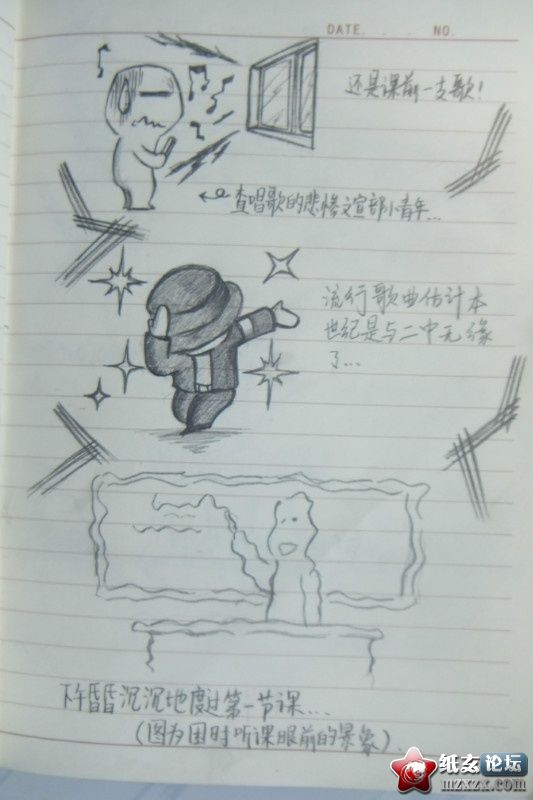 DATE. . . . NO
还是课前一支歌!
查唱歌的悲惨文宣部小青年...
流行歌曲估计本
世纪是与二中无缘
了...
下午昏昏沉沉地度过第一节课...
(图为困时听课眼前的景象).
纸友论坛
mzxzx.com